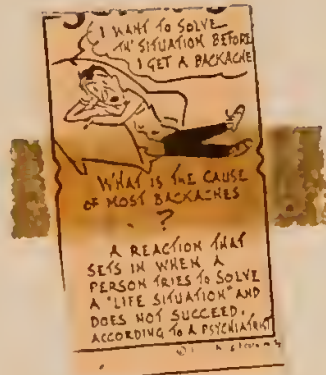 I WANT TO SOLVE
TH' SITUATION BEFORE
I GET A BACKACHE
WHAT IS THE CAUSE
OF MOST BACKACHES
?
A REACTION THAT
SETS IN WHEN A
PERSON TRIES TO SOLVE
A "LIFE SITUATION" AND
DOES NOT SUCCEED,
ACCORDING TO A PSYCHIATRIST